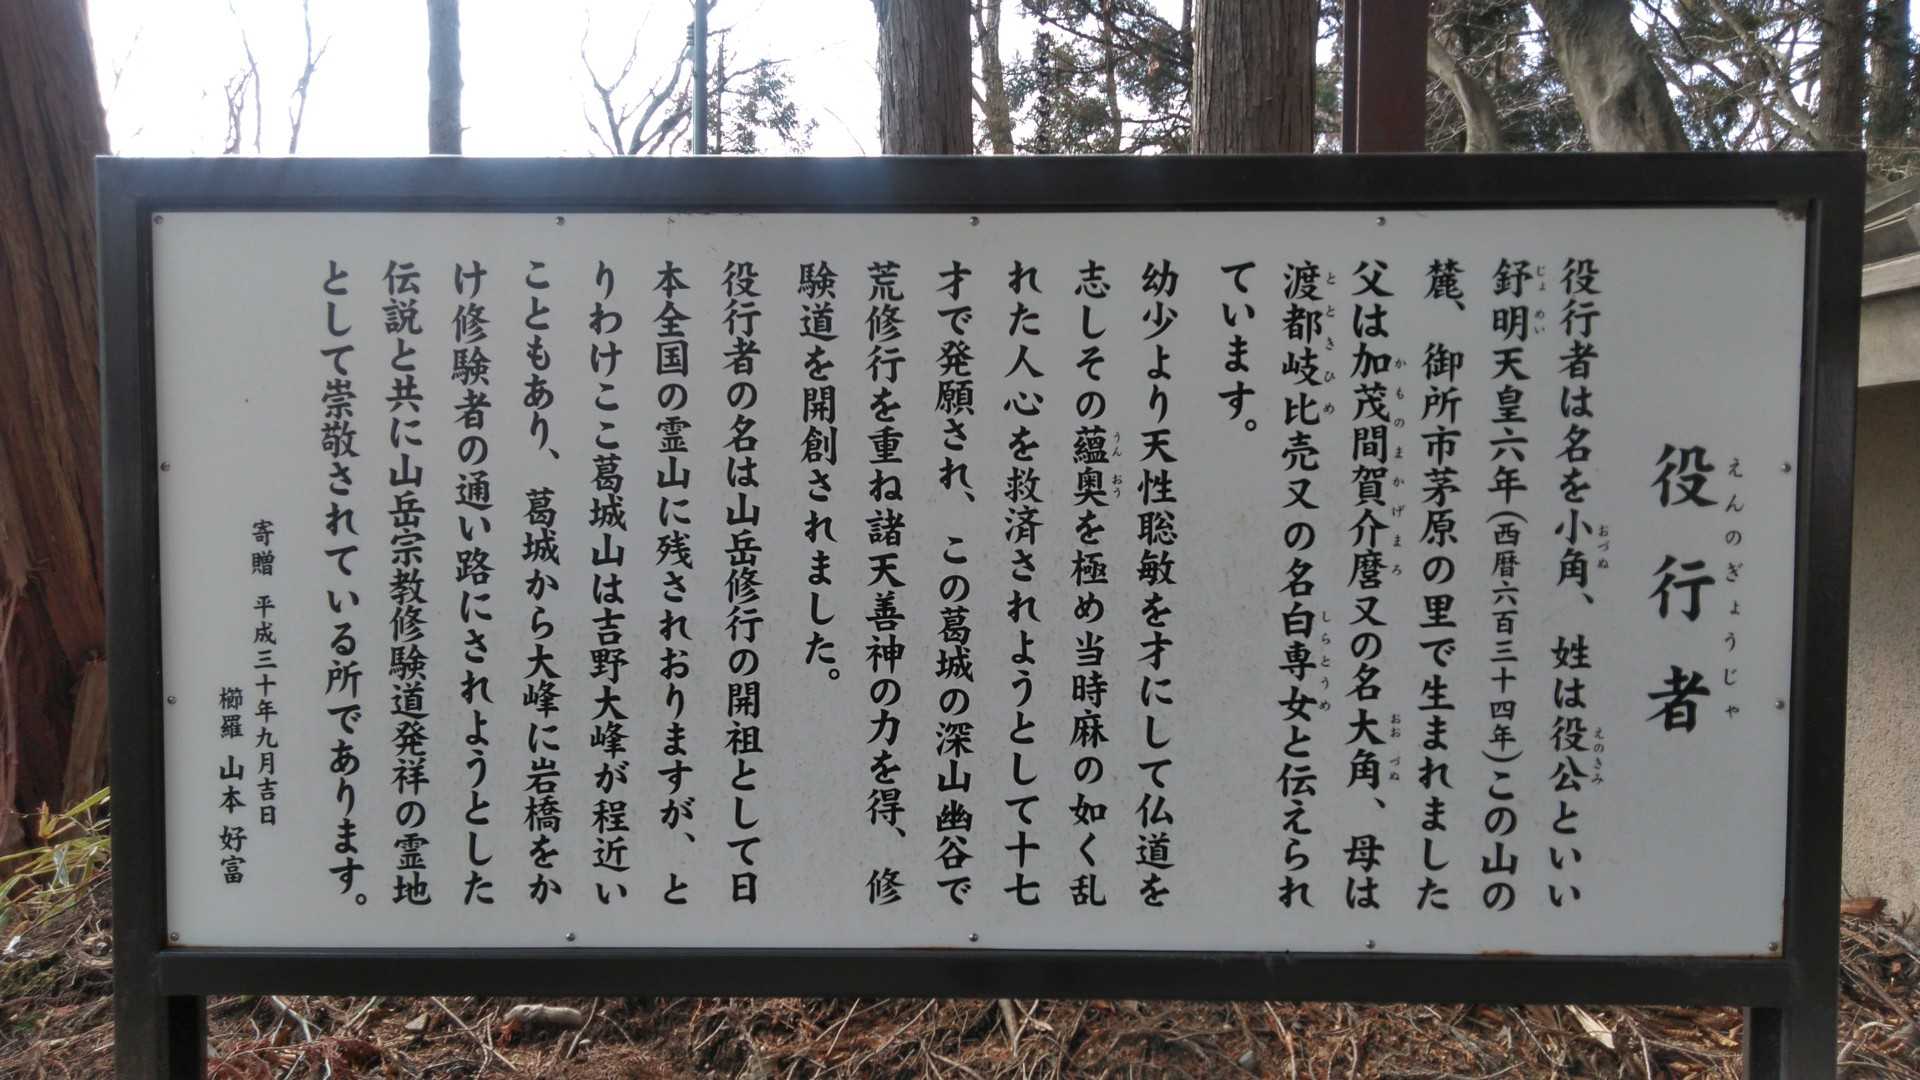 役行者
えんのぎょうじゃ
役行者は名を小角、姓は役公といい
おづぬ
えのきみ
舒明天皇六年(西暦六百三十四年)この山の
じょめい
麓、御所市茅原の里で生まれました
父は加茂間賀介麿又の名大角、母は
かものまかげまろ
おおづぬ
渡都岐比売又の名白専女と伝えられ
とときひめ
しらとうめ
ています。
幼少より天性聡敏を才にして仏道を
志しその蘊奥を極め当時麻の如く乱
うんおう
れた人心を救済されようとして十七
才で発願され、この葛城の深山幽谷で
荒修行を重ね諸天善神の力を得、修
験道を開創されました。
役行者の名は山岳修行の開祖として日
本全国の霊山に残されおりますが、と
りわけここ葛城山は吉野大峰が程近い
こともあり、葛城から大峰に岩橋をか
け修験者の通い路にされようとした
伝説と共に山岳宗教修験道発祥の霊地
として崇敬されている所であります。
寄贈 平成三十年九月吉日
櫛羅 山本好富